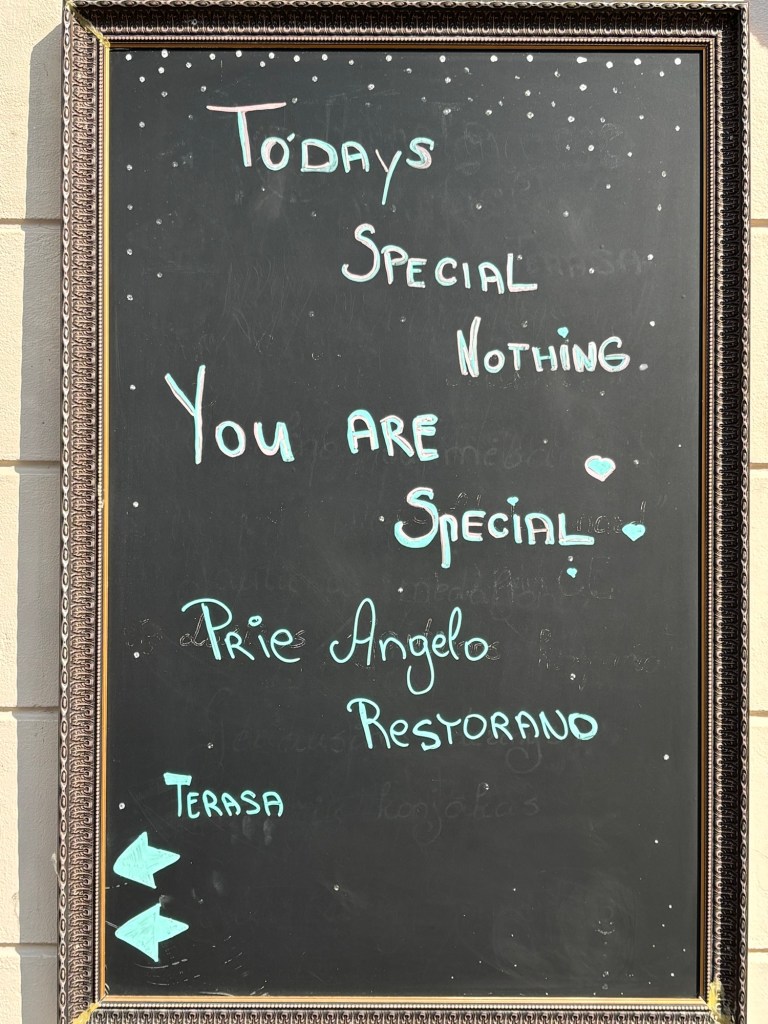 TODAYS
SPECIAL
NOTHING.
YOU ARE
SPECIAL
PRIE Angelo
RESTORANO
TERASA